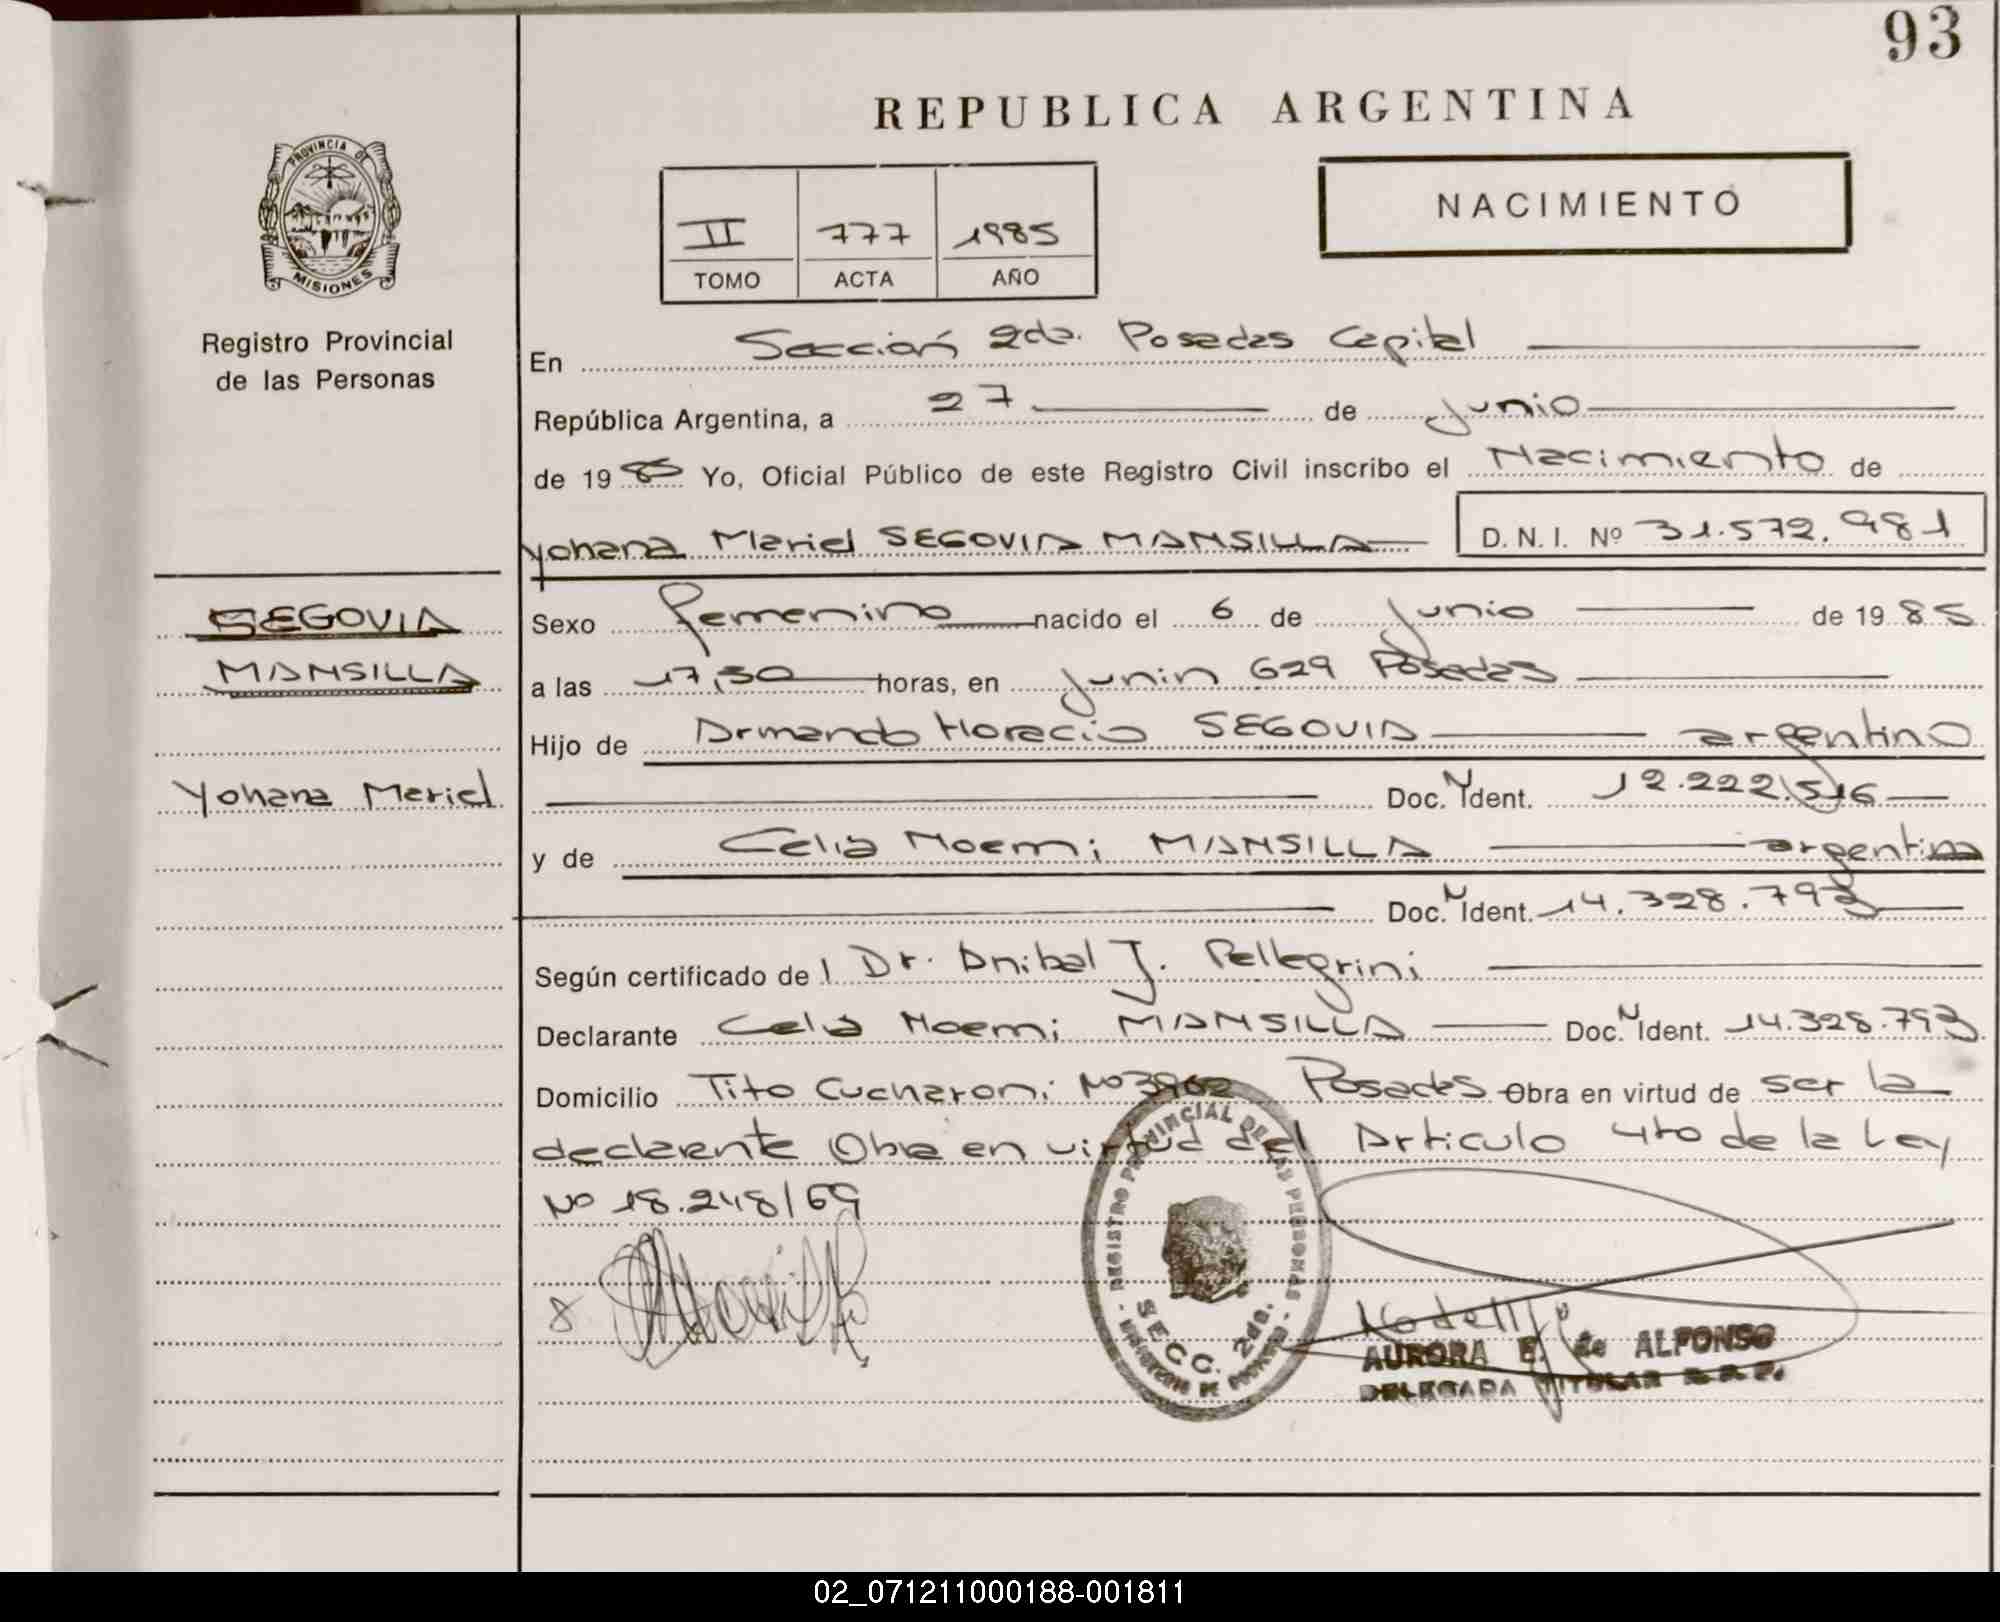 93
REPUBLICA ARGENTINA
PROVINCIA DE
MISIONES
Registro Provincial
de las Personas
II 777 1985
TOMO ACTA AÑO
NACIMIENTO
En Sección 2da. Posadas Capital
República Argentina, a 27 de Junio
de 1985 Yo, Oficial Público de este Registro Civil inscribo el Nacimiento de
Yohana Mariel SEGOVIA MANSILLA D. N. I. Nº 31.572.981
SEGOVIA
MANSILLA
Yohana Mariel
Sexo femenino nacido el 6 de Junio de 1985
a las 17,30 horas, en Junin 629 Posadas
Hijo de Armando Horacio SEGOVIA argentino
Doc. N Ident. 12.222.516
y de Celia Noemi MANSILLA argentina
Doc. N Ident. 14.328.793
Según certificado de l Dr. Anibal J. Pellegrini
Declarante Celia Noemi MANSILLA Doc. N Ident. 14.328.793
Domicilio Tito Cucharoni Nº 3962 Posadas Obra en virtud de ser la
declarante Obra en virtud del Articulo 4to de la Ley
Nº 18.248/69
REGISTRO PROVINCIAL DE LAS PERSONAS
SECC. 2da.
MINISTERIO DE GOBIERNO
AURORA E. de ALFONSO
DELEGADA TITULAR R.P.P.
02_071211000188-001811